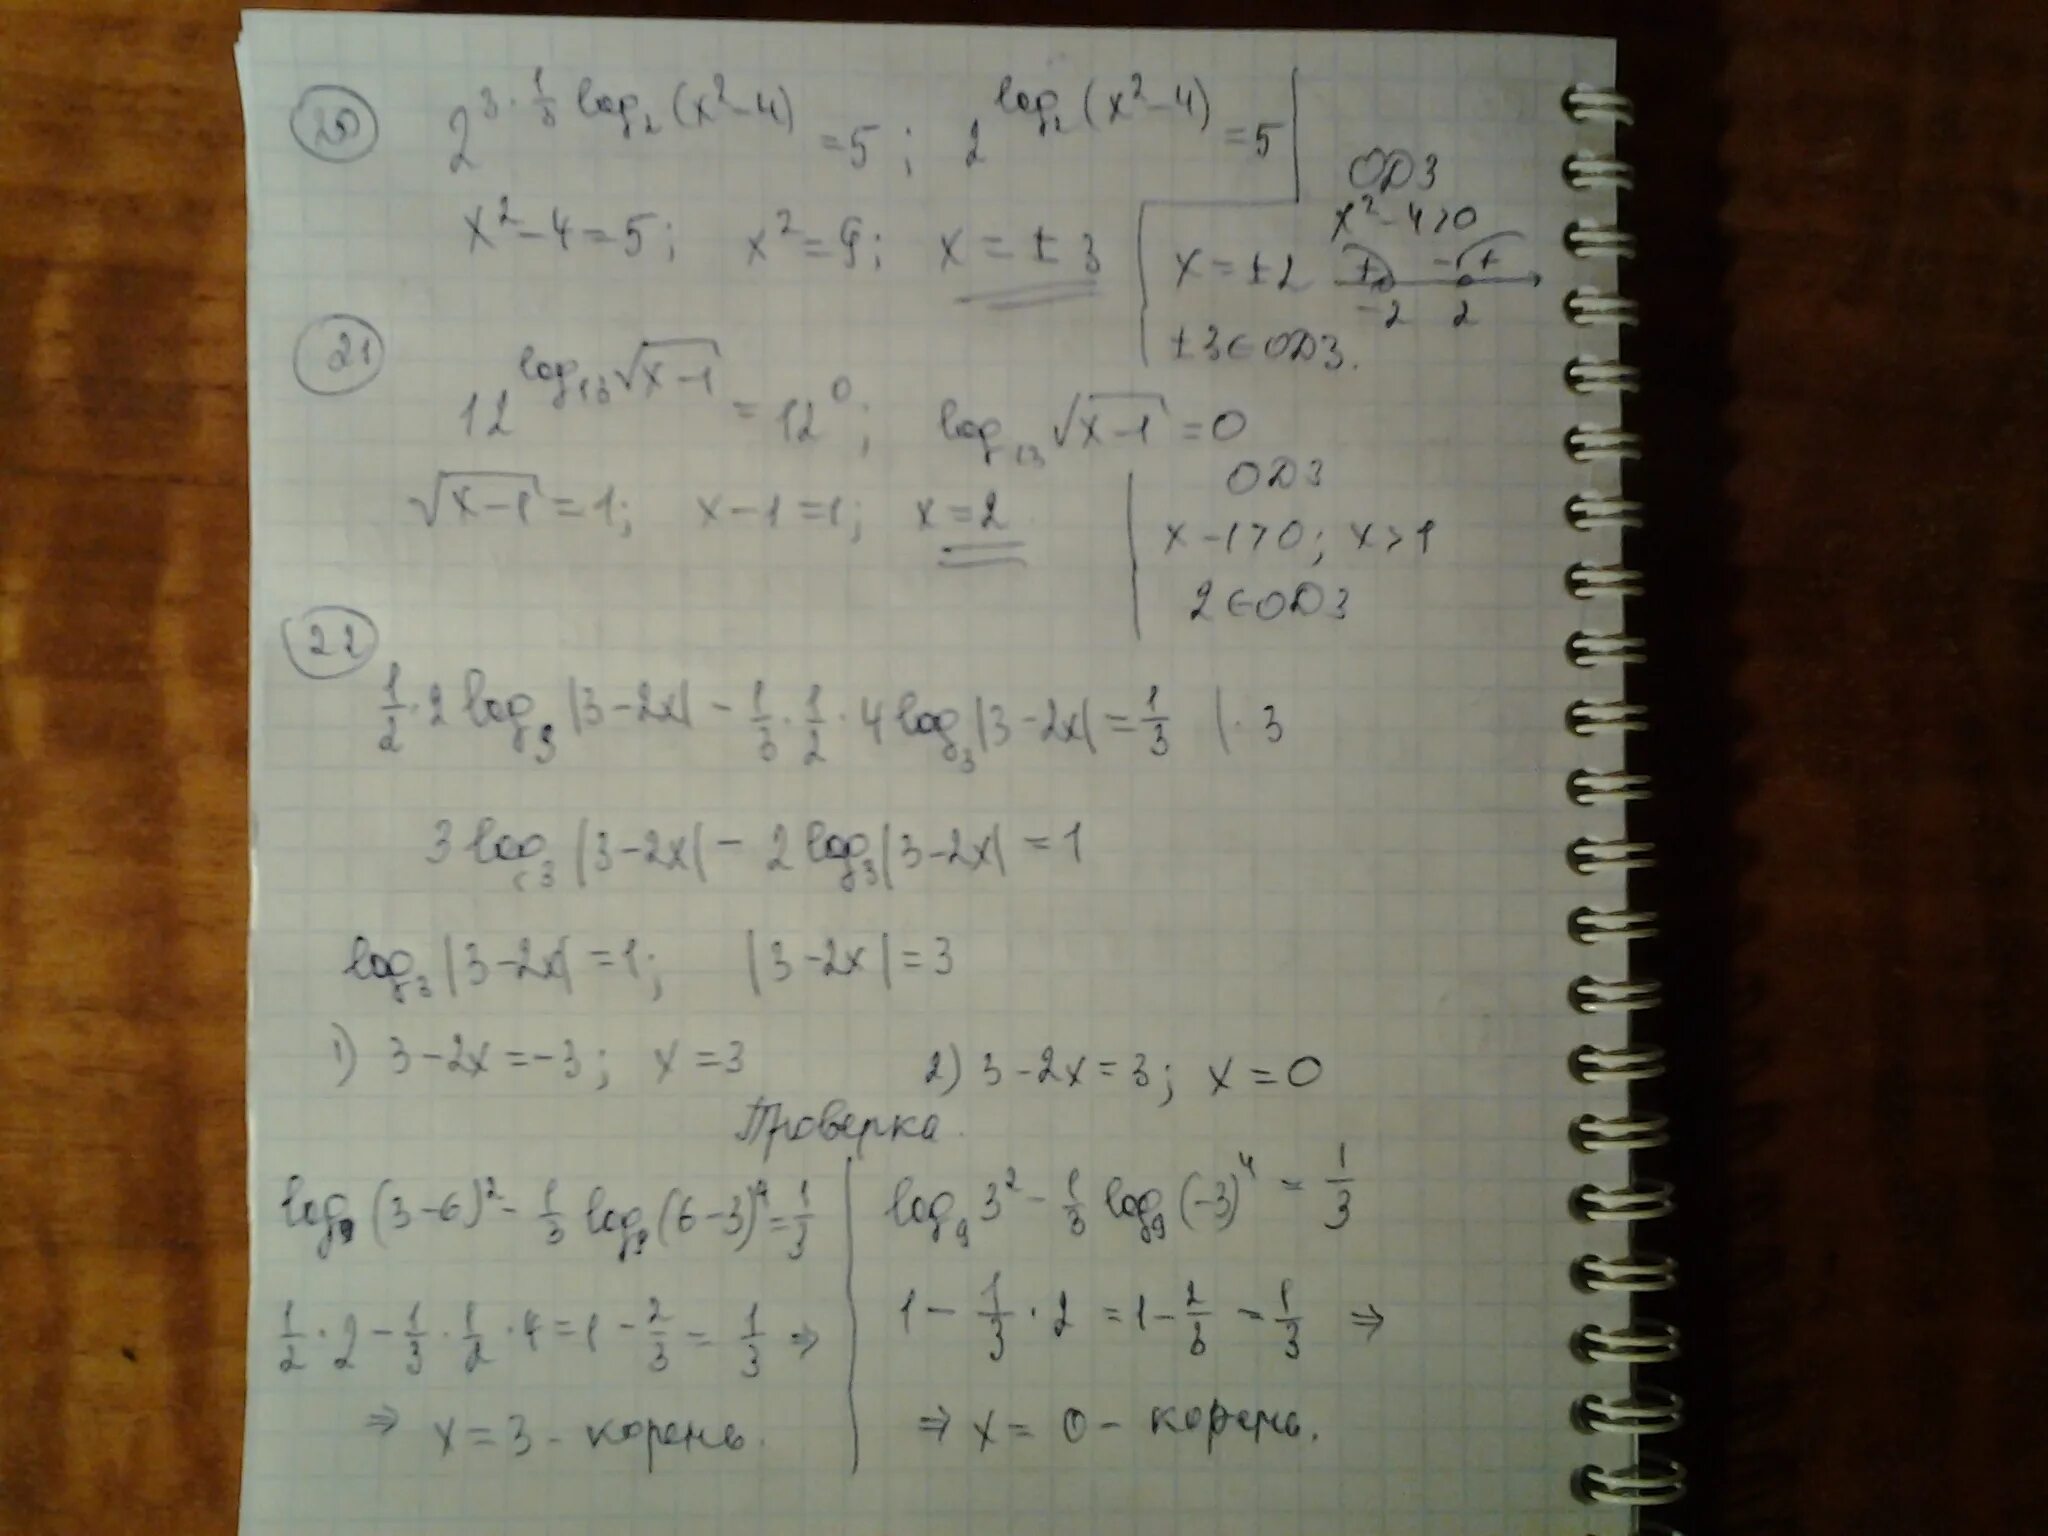 20
2^{3·1/3 log₂(x²-4)} = 5; 2^{log₂(x²-4)} = 5
x²-4=5; x²=9; x=±3
ОДЗ
x²-4>0
x=±2 + - +
-2 2
±3∈ОДЗ.
21
12^{log₁₃√(x-1)} = 12⁰; log₁₃√(x-1) = 0
√(x-1) = 1; x-1=1; x=2
ОДЗ
x-1>0; x>1
2∈ОДЗ
22
1/2·2 log₃|3-2x| - 1/3·1/2·4 log₃|3-2x| = 1/3 |·3
3 log₃|3-2x| - 2 log₃|3-2x| = 1
log₃|3-2x| = 1; |3-2x| = 3
1) 3-2x=-3; x=3 2) 3-2x=3; x=0
Проверка.
log₉(3-6)² - 1/3 log₉(6-3)⁴ = 1/3
1/2·2 - 1/3·1/2·4 = 1 - 2/3 = 1/3 ⇒
⇒ x=3 - корень.
log₉3² - 1/3 log₉(-3)⁴ = 1/3
1 - 1/3·2 = 1 - 2/3 = 1/3 ⇒
⇒ x=0 - корень.